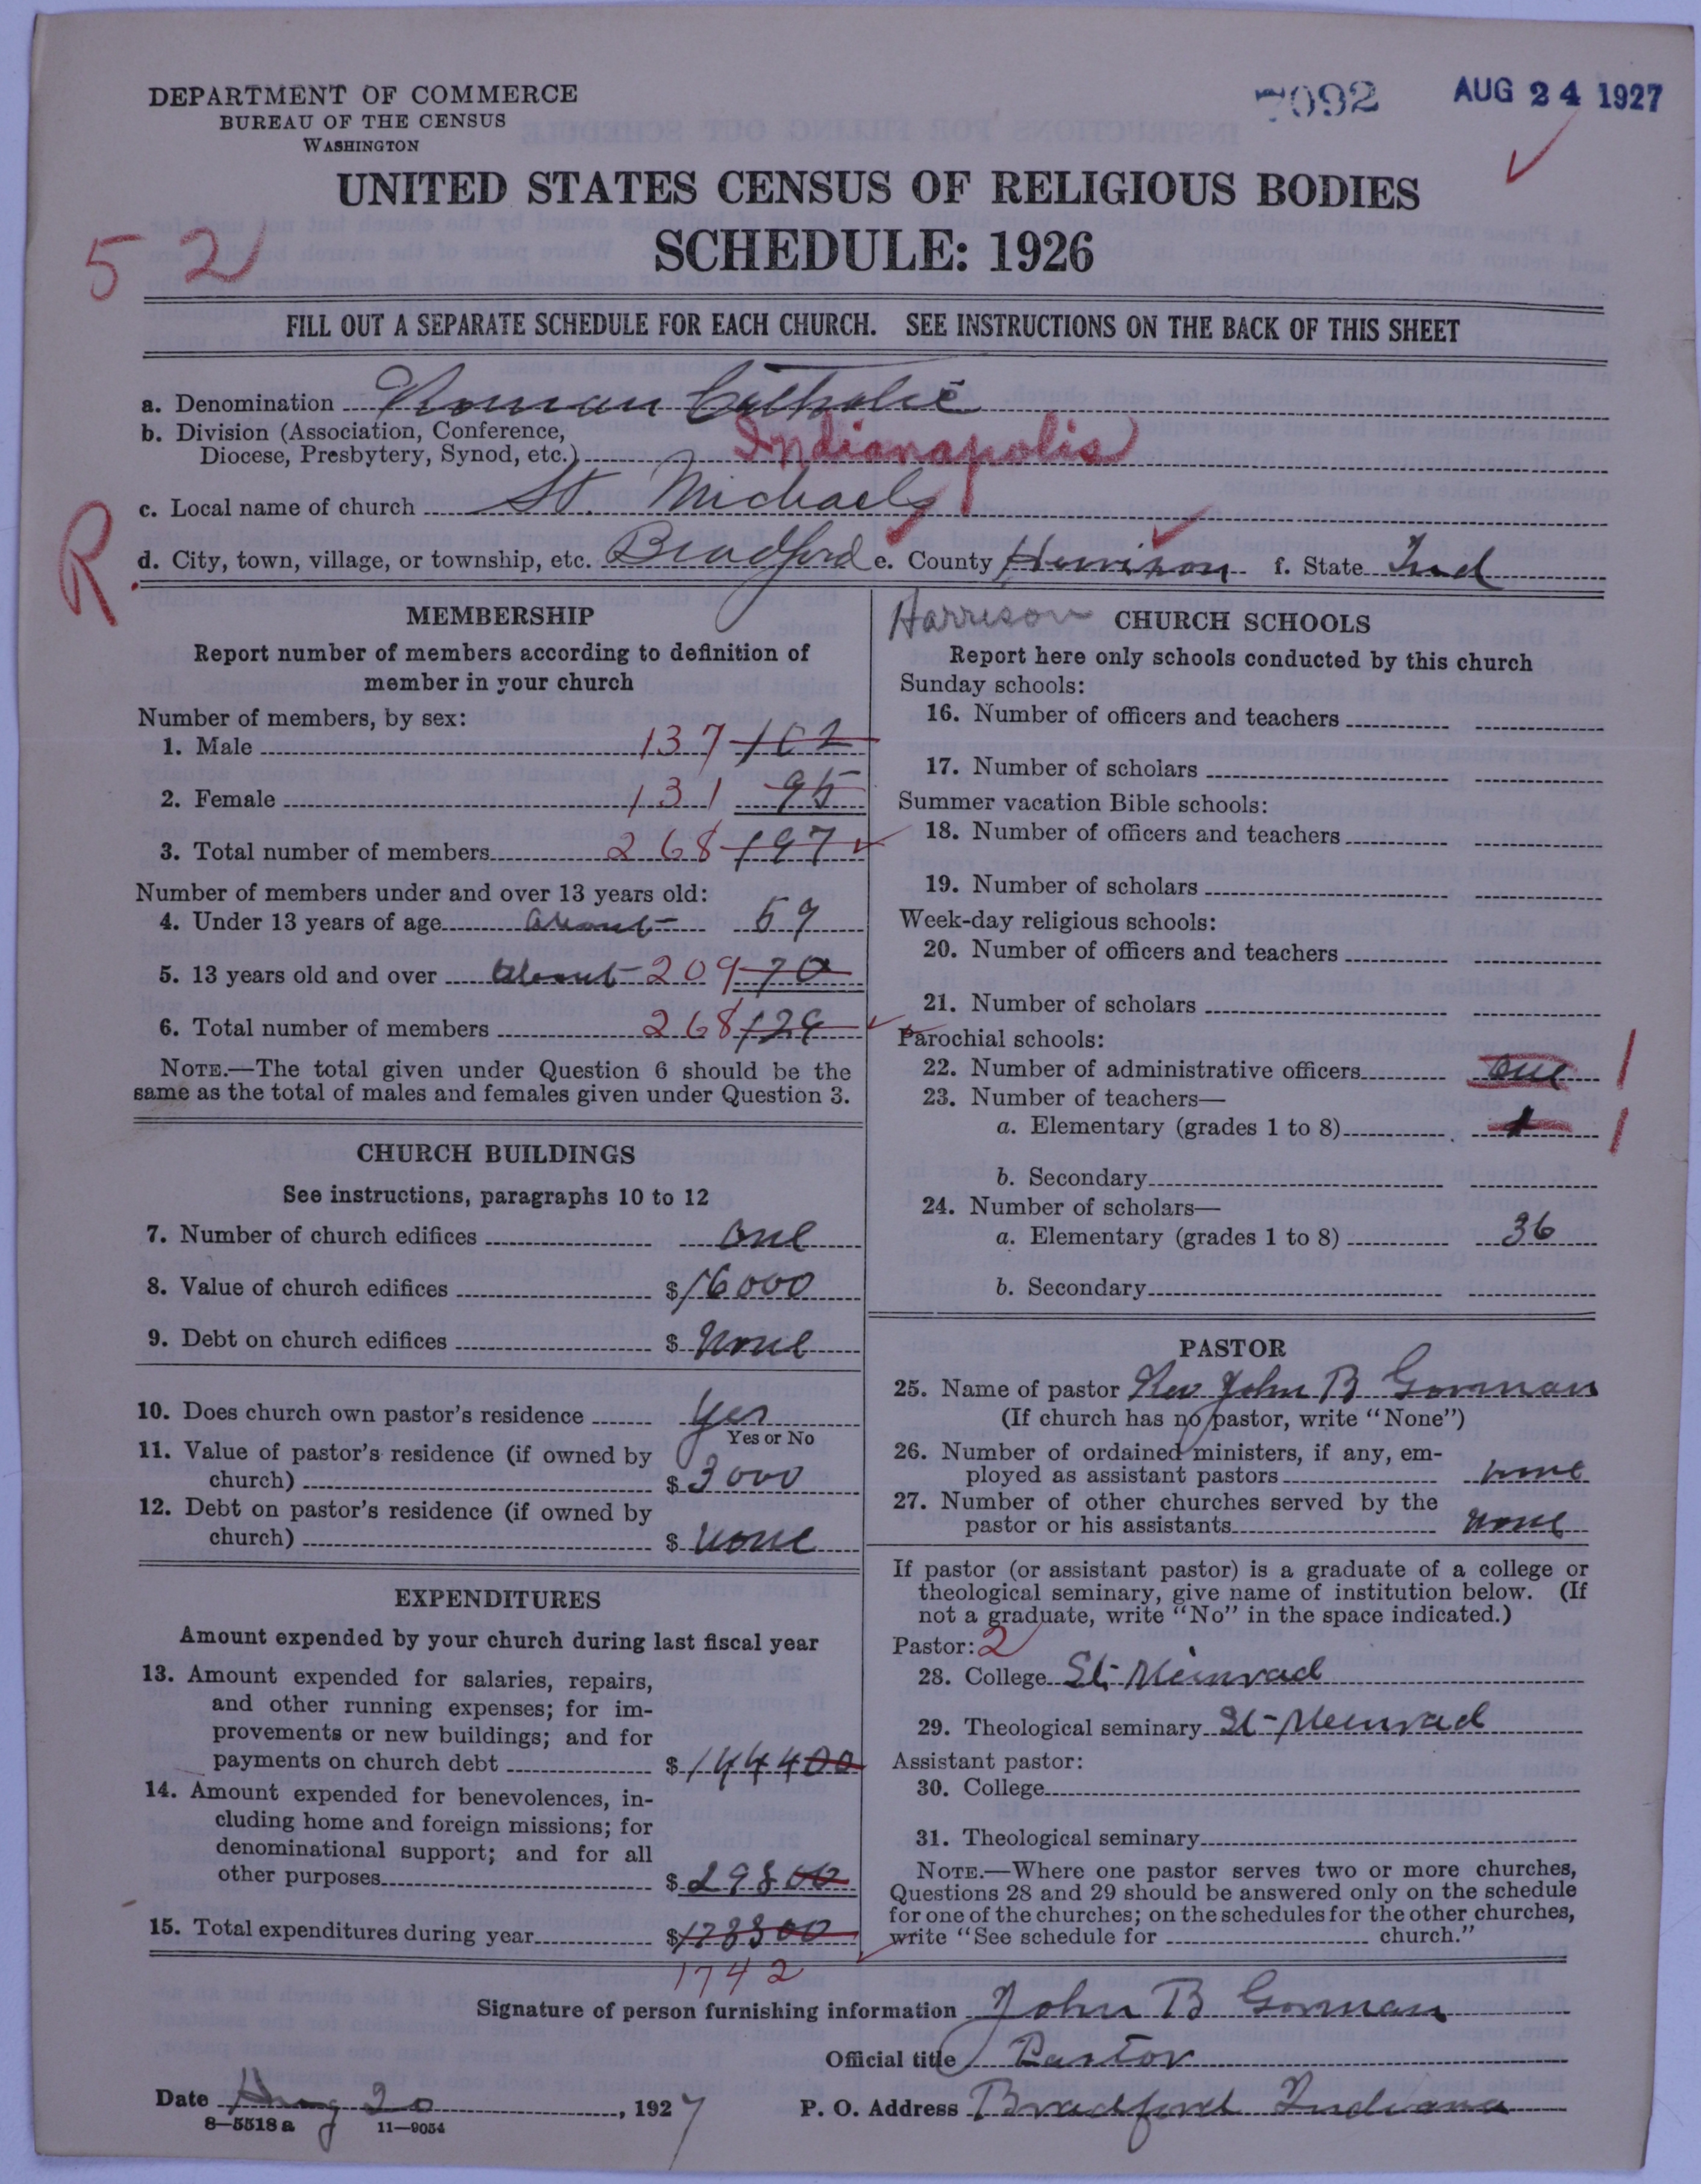 DEPARTMENT OF COMMERCE
BUREAU OF THE CENSUS
WASHINGTON
7092 AUG 24 1927
UNITED STATES CENSUS OF RELIGIOUS BODIES
SCHEDULE: 1926
52
FILL OUT A SEPARATE SCHEDULE FOR EACH CHURCH. SEE INSTRUCTIONS ON THE BACK OF THIS SHEET
a. Denomination Roman Catholic
b. Division (Association, Conference,
Diocese, Presbytery, Synod, etc.) Indianapolis
c. Local name of church St. Michaels
R
d. City, town, village, or township, etc. Bradford e. County Harrison f. State Ind
MEMBERSHIP
Report number of members according to definition of
member in your church
Number of members, by sex:
1. Male 137 102
2. Female 131 95
3. Total number of members 268 197
Number of members under and over 13 years old:
4. Under 13 years of age about 59
5. 13 years old and over about 209 70
6. Total number of members 268 129
NOTE.—The total given under Question 6 should be the
same as the total of males and females given under Question 3.
CHURCH BUILDINGS
See instructions, paragraphs 10 to 12
7. Number of church edifices one
8. Value of church edifices $16000
9. Debt on church edifices $ None
10. Does church own pastor's residence Yes
Yes or No
11. Value of pastor's residence (if owned by
church) $3000
12. Debt on pastor's residence (if owned by
church) $ None
EXPENDITURES
Amount expended by your church during last fiscal year
13. Amount expended for salaries, repairs,
and other running expenses; for im-
provements or new buildings; and for
payments on church debt $144400
14. Amount expended for benevolences, in-
cluding home and foreign missions; for
denominational support; and for all
other purposes $29800
15. Total expenditures during year $178300
1742
Harrison CHURCH SCHOOLS
Report here only schools conducted by this church
Sunday schools:
16. Number of officers and teachers
17. Number of scholars
Summer vacation Bible schools:
18. Number of officers and teachers
19. Number of scholars
Week-day religious schools:
20. Number of officers and teachers
21. Number of scholars
Parochial schools:
22. Number of administrative officers one 1
23. Number of teachers—
a. Elementary (grades 1 to 8) 1 1
b. Secondary
24. Number of scholars—
a. Elementary (grades 1 to 8) 36
b. Secondary
PASTOR
25. Name of pastor Rev John B Gorman
(If church has no pastor, write "None")
26. Number of ordained ministers, if any, em-
ployed as assistant pastors none
27. Number of other churches served by the
pastor or his assistants none
If pastor (or assistant pastor) is a graduate of a college or
theological seminary, give name of institution below. (If
not a graduate, write "No" in the space indicated.)
Pastor: 2
28. College St. Meinrad
29. Theological seminary St-Meinrad
Assistant pastor:
30. College
31. Theological seminary
NOTE.—Where one pastor serves two or more churches,
Questions 28 and 29 should be answered only on the schedule
for one of the churches; on the schedules for the other churches,
write "See schedule for church."
Signature of person furnishing information John B Gorman
Official title Pastor
Date Aug 20, 1927 P. O. Address Bradford Indiana
8—5518 a 11—9054